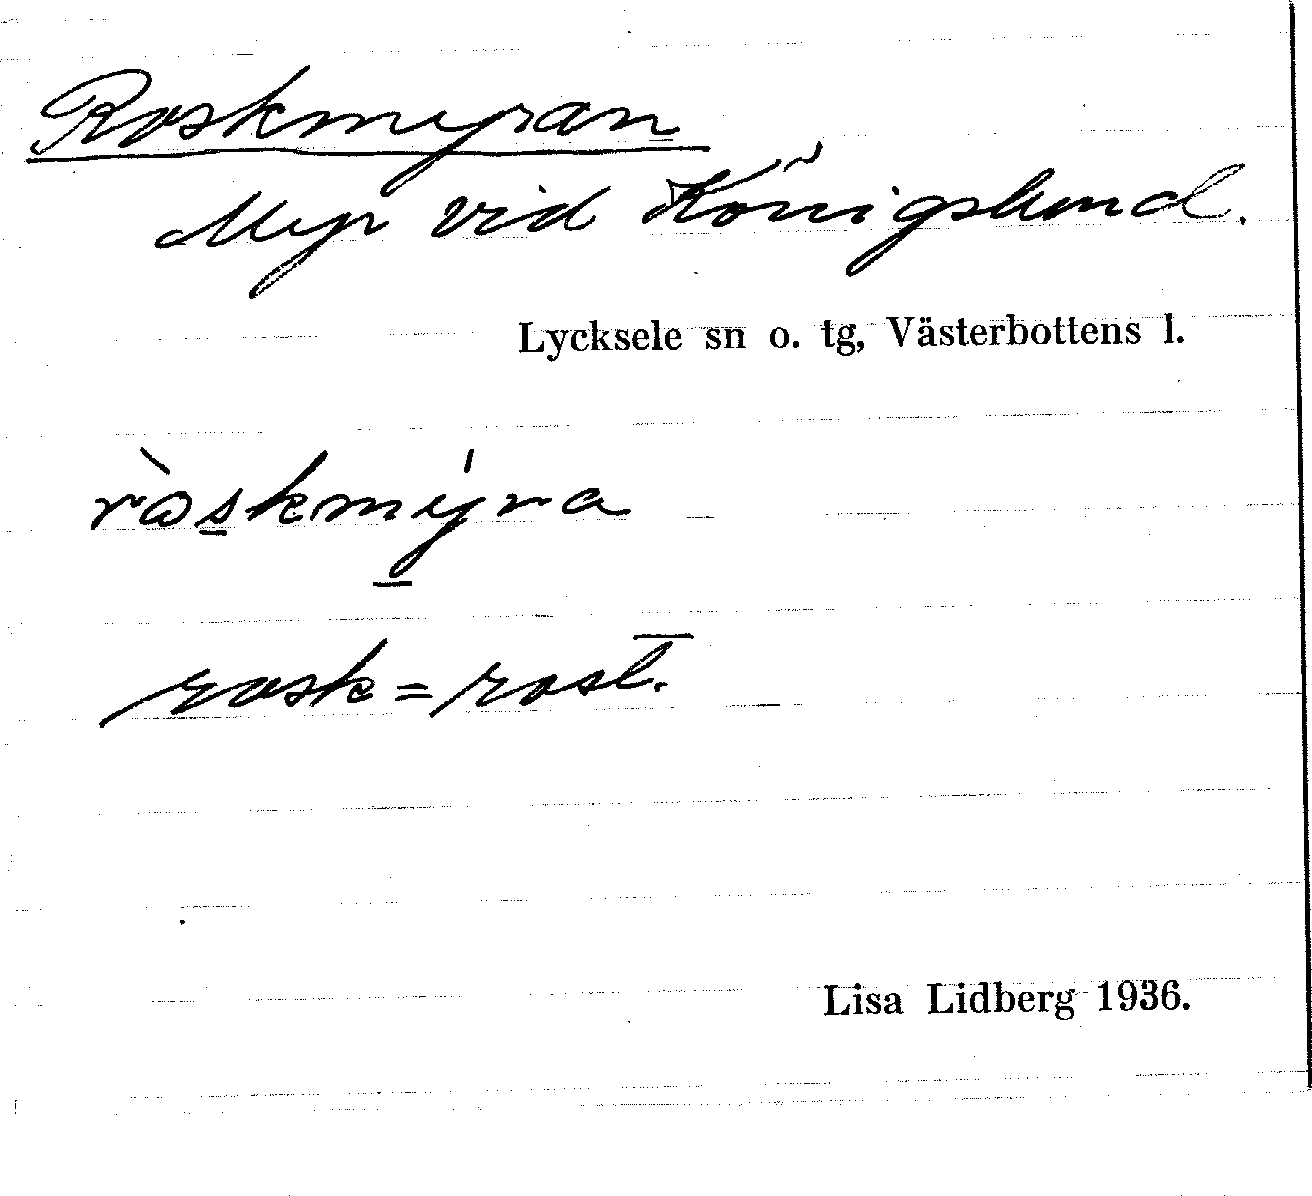 Roskmyran
Myr vid Königslund.
Lycksele sn o. tg, Västerbottens l.
ròskmý̱ra
rosk = rost.
Lisa Lidberg 1936.